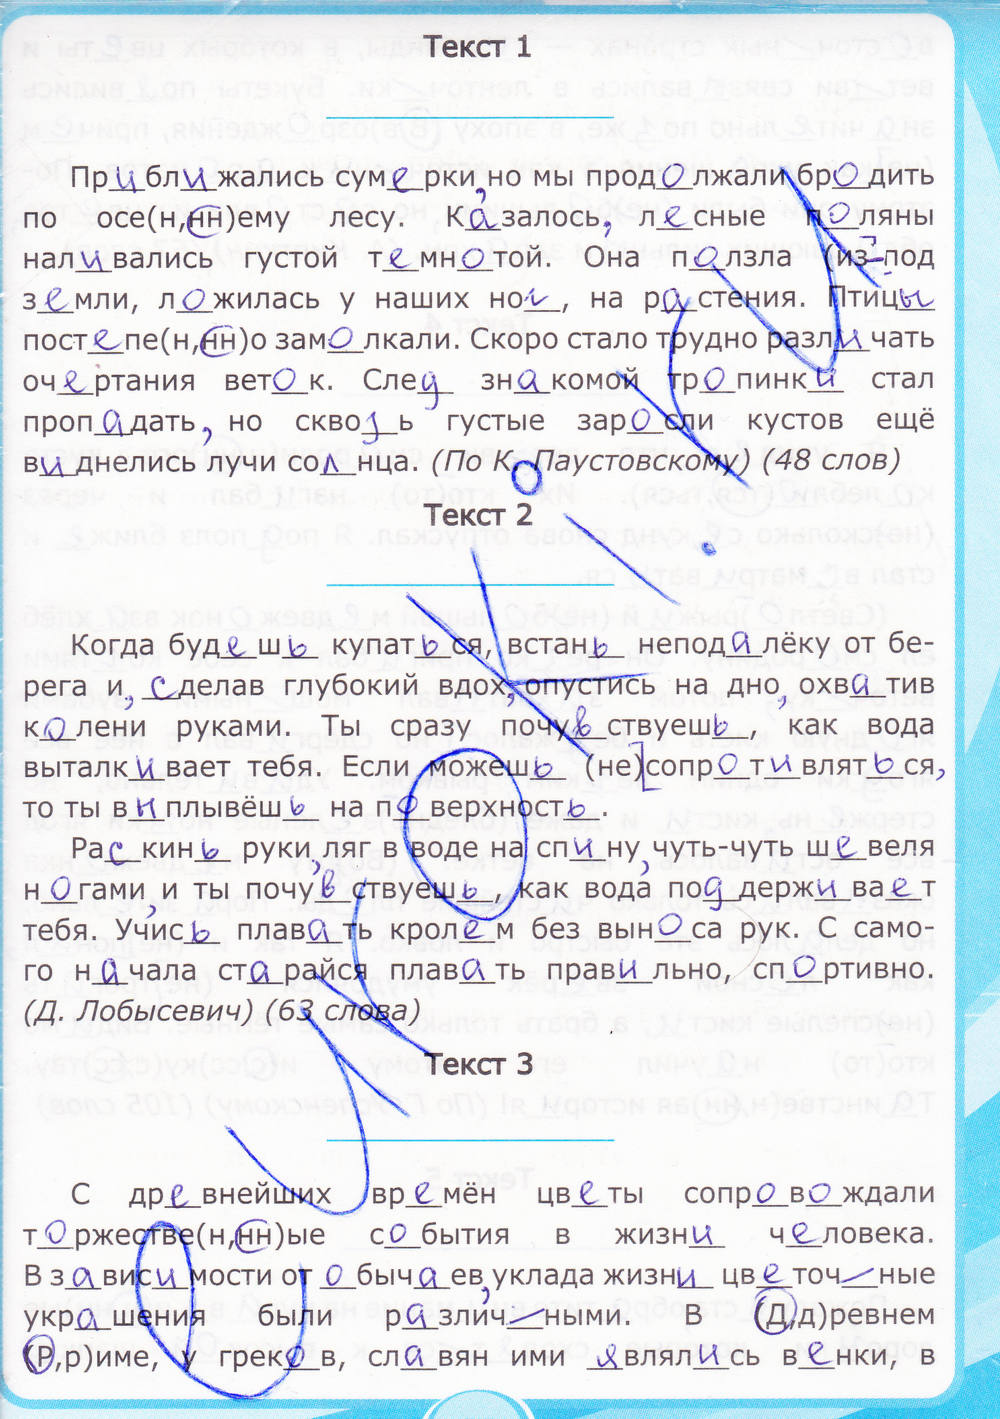 Текст 1
Приближались сумерки, но мы продолжали бродить
по осе(н,нн)ему лесу. Казалось, лесные поляны
наливались густой темнотой. Она ползла (из-под
земли, ложилась у наших ног, на растения. Птицы
постепе(н,нн)о замолкали. Скоро стало трудно различать
очертания веток. След знакомой тропинки стал
пропадать, но сквозь густые заросли кустов ещё
виднелись лучи солнца. (По К. Паустовскому) (48 слов)
Текст 2
Когда будешь купаться, встань неподалёку от бе-
рега и, сделав глубокий вдох, опустись на дно, охватив
колени руками. Ты сразу почувствуешь, как вода
выталкивает тебя. Если можешь (не)сопротивляться,
то ты внплывёшь на поверхность.
Раскинь руки, ляг в воде на спину, чуть-чуть шевеля
ногами, и ты почувствуешь, как вода поддерживает
тебя. Учись плавать кролем без выноса рук. С само-
го начала старайся плавать правильно, спортивно.
(Д. Лобысевич) (63 слова)
Текст 3
С древнейших времён цветы сопровождали
торжестве(н,нн)ые события в жизни человека.
В зависимости от обычаев, уклада жизни цветочные
украшения были различными. В (Д,д)ревнем
(Р,р)име, у греков, славян ими являлись венки, в
УЖУРОКИ.РУ